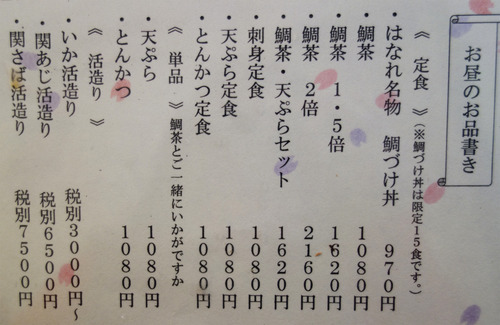 お昼のお品書き
《 定食 》（※鯛づけ丼は限定15食です。）
・はなれ名物 鯛づけ丼 970円
・鯛茶 1080円
・鯛茶 1・5倍 1620円
・鯛茶 2倍 2160円
・鯛茶・天ぷらセット 1620円
・刺身定食 1080円
・天ぷら定食 1080円
・とんかつ定食 1080円
《 単品 》鯛茶とご一緒にいかがですか
・天ぷら 1080円
・とんかつ 1080円
《 活造り 》
・いか活造り 税別3000円～
・関あじ活造り 税別6500円
・関さば活造り 税別7500円